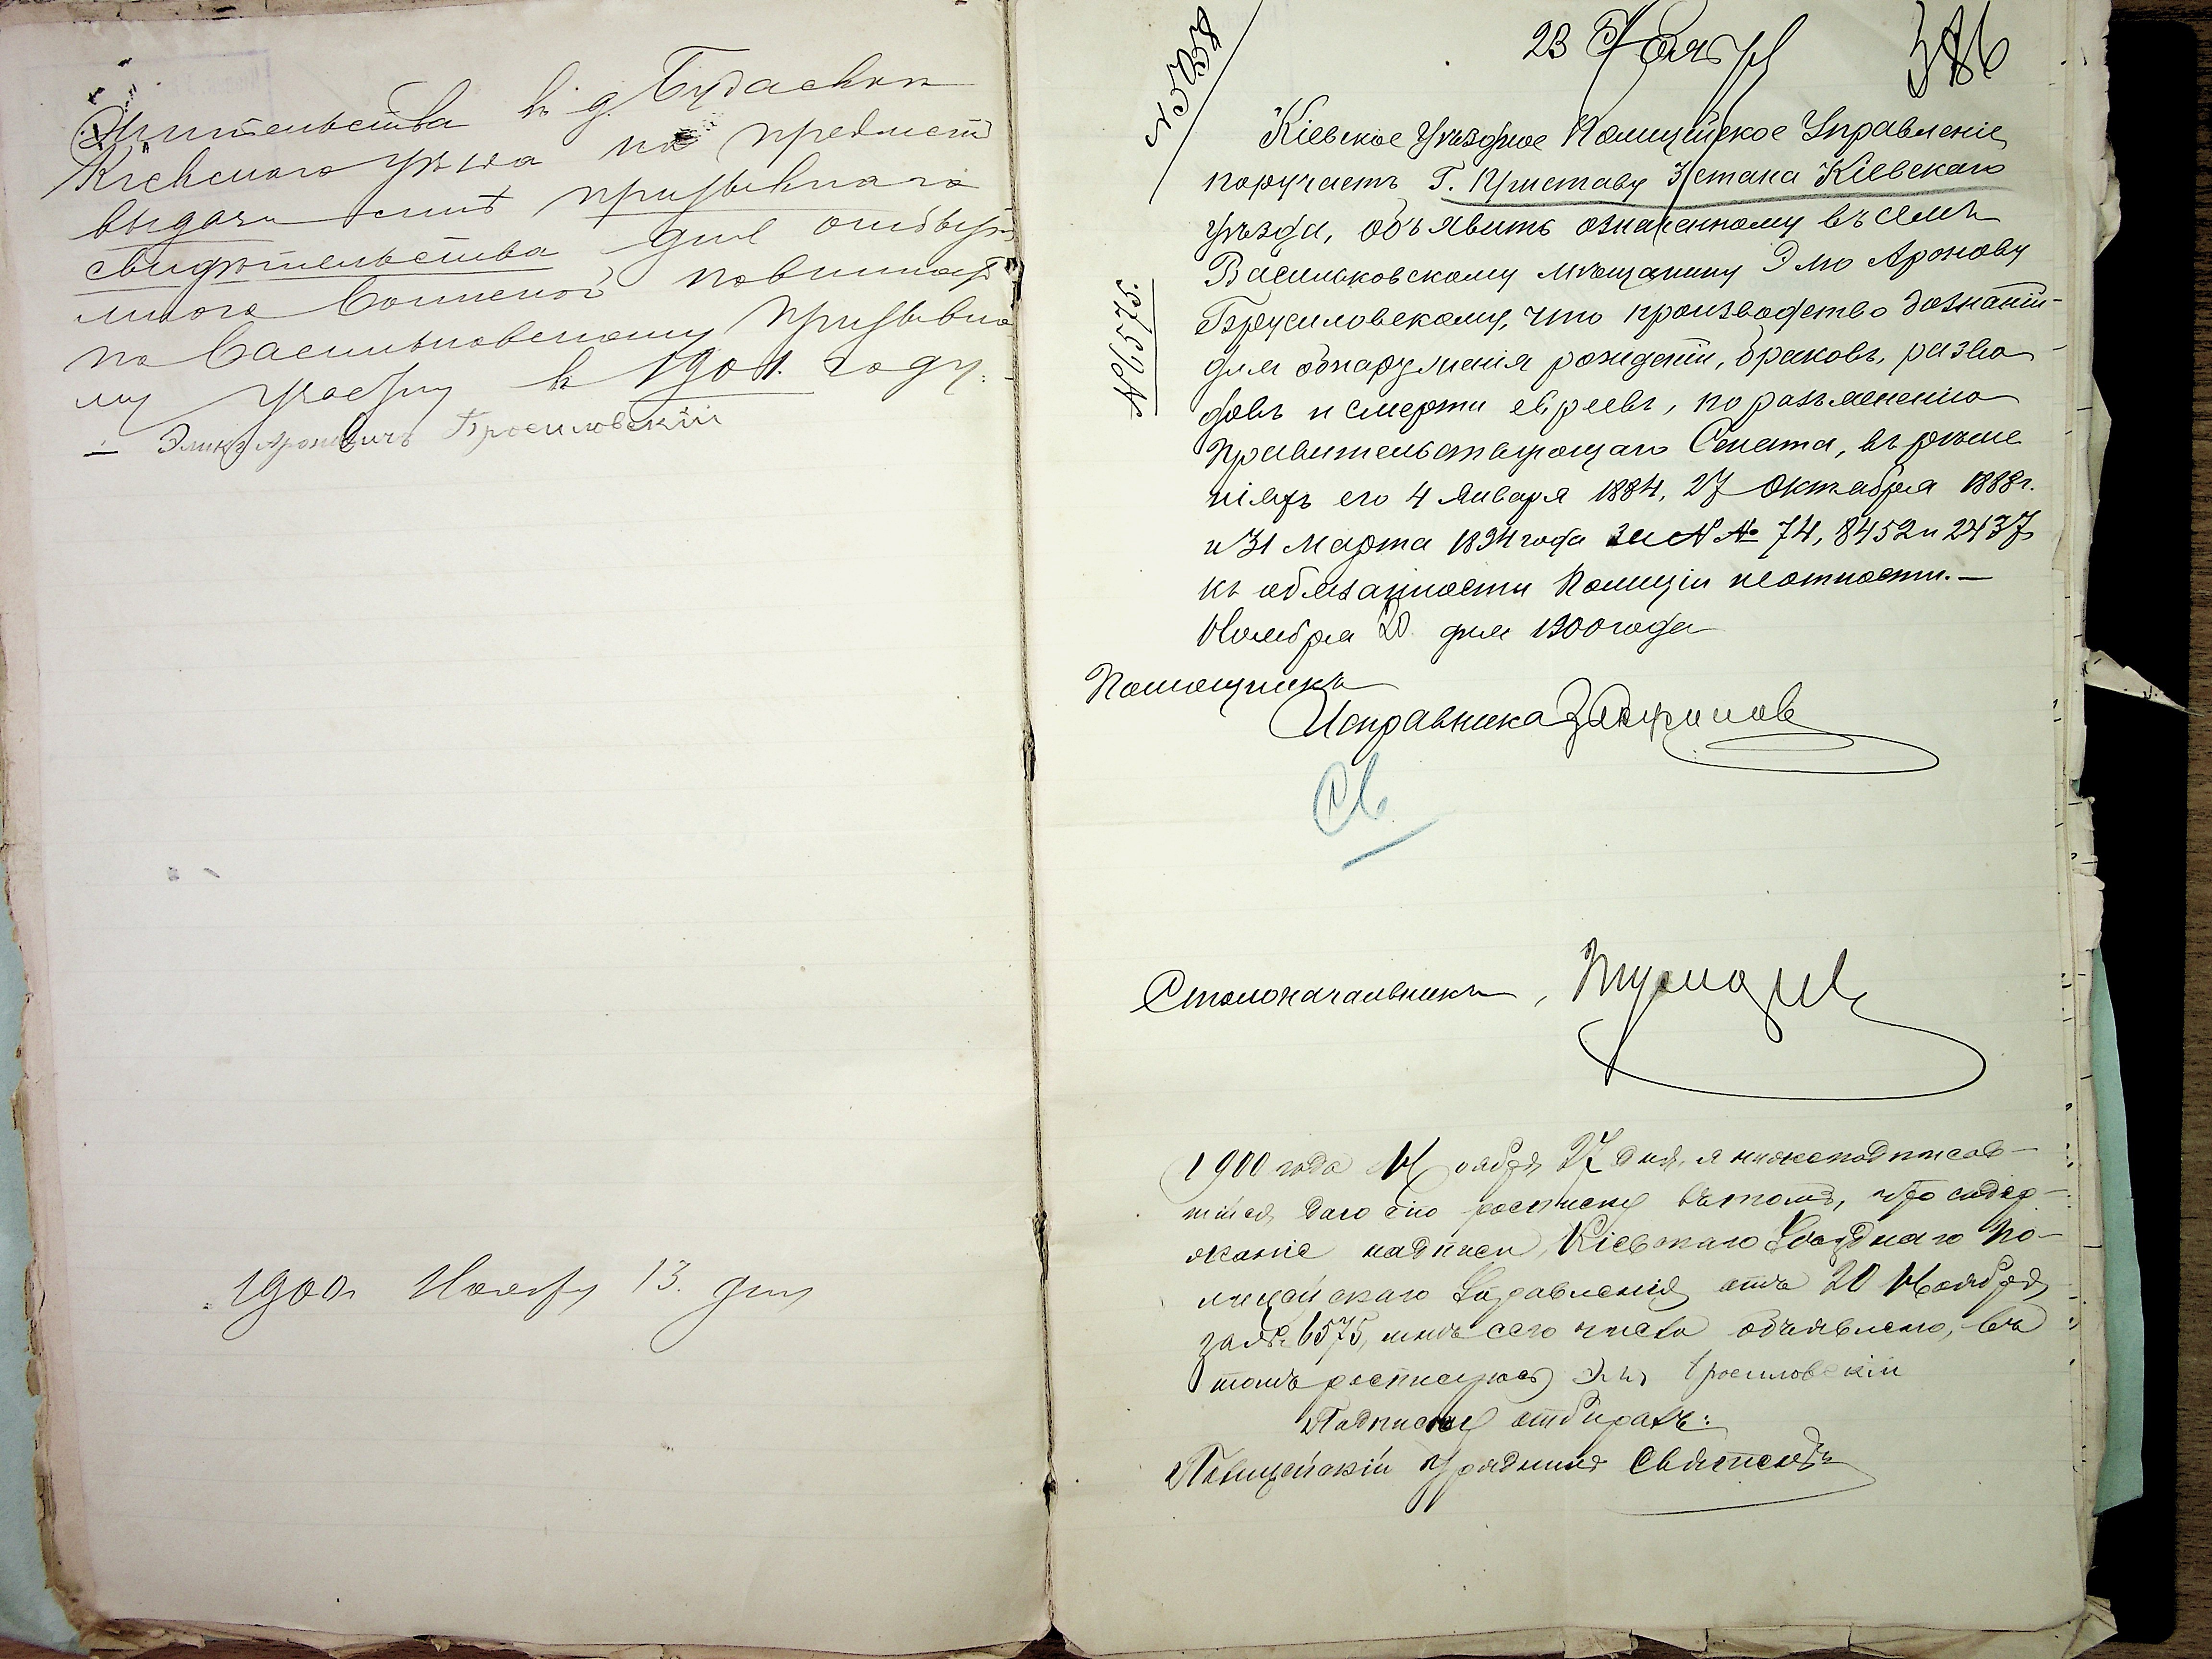 Жительства въ д. Будаевки
Кіевскаго уѣзда на предметъ
выдачи мнѣ призывнаго
свидѣтельства для отбыт-
Воинской повинност
по Васильковскому призывно
му участку в 1901. году.
Эликъ Ароновичъ Бросиловскій
1900 Ноября 13. дня
№ 5058
23 Ноября
386
№ 6575.
Кіевское Уѣздное Полицейское Управленіе
поручаетъ Г. Приставу 3 стана Кіевскаго
уѣзда, объявить означенному въ семъ
Васильковскому мѣщанину Элю Аронову
Брусиловскому, что производство дознаній
для обнаруженія рожденій, браковъ, разво
довъ и смерти евреевъ, по разъясненію
Правительствующаго Сената, въ рѣше
ніяхъ его 4 Января 1884, 27 Октября 1888 г.
и 31 Марта 1894 года за №№ 74, 8452 и 2437,
къ обязанности Полиціи не отности. —
Ноября 20 дня 1900 года
Помощникъ
Исправника
Св.
Столоначальникъ,
1900 года Ноября 27 дня, я нижеподписав-
шійся, даю сію росписку въ томъ, что содер-
жаніе надписи, Кіевскаго Уѣзднаго По-
лицейскаго Управленія отъ 20 Ноября
за № 6575, мнѣ сего числа объявлено, въ
томъ росписуюсь Эль Бросиловскій
Подписку отбиралъ:
Полицейскій Урядникъ